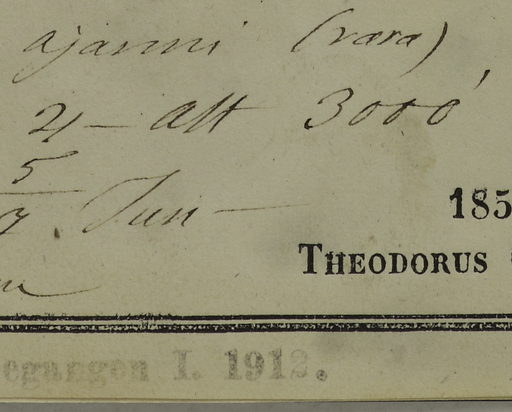 ajanni (rara)
4 - alt 3000'
5
7. Jun - 185
THEODORUS
egangen I. 1912.